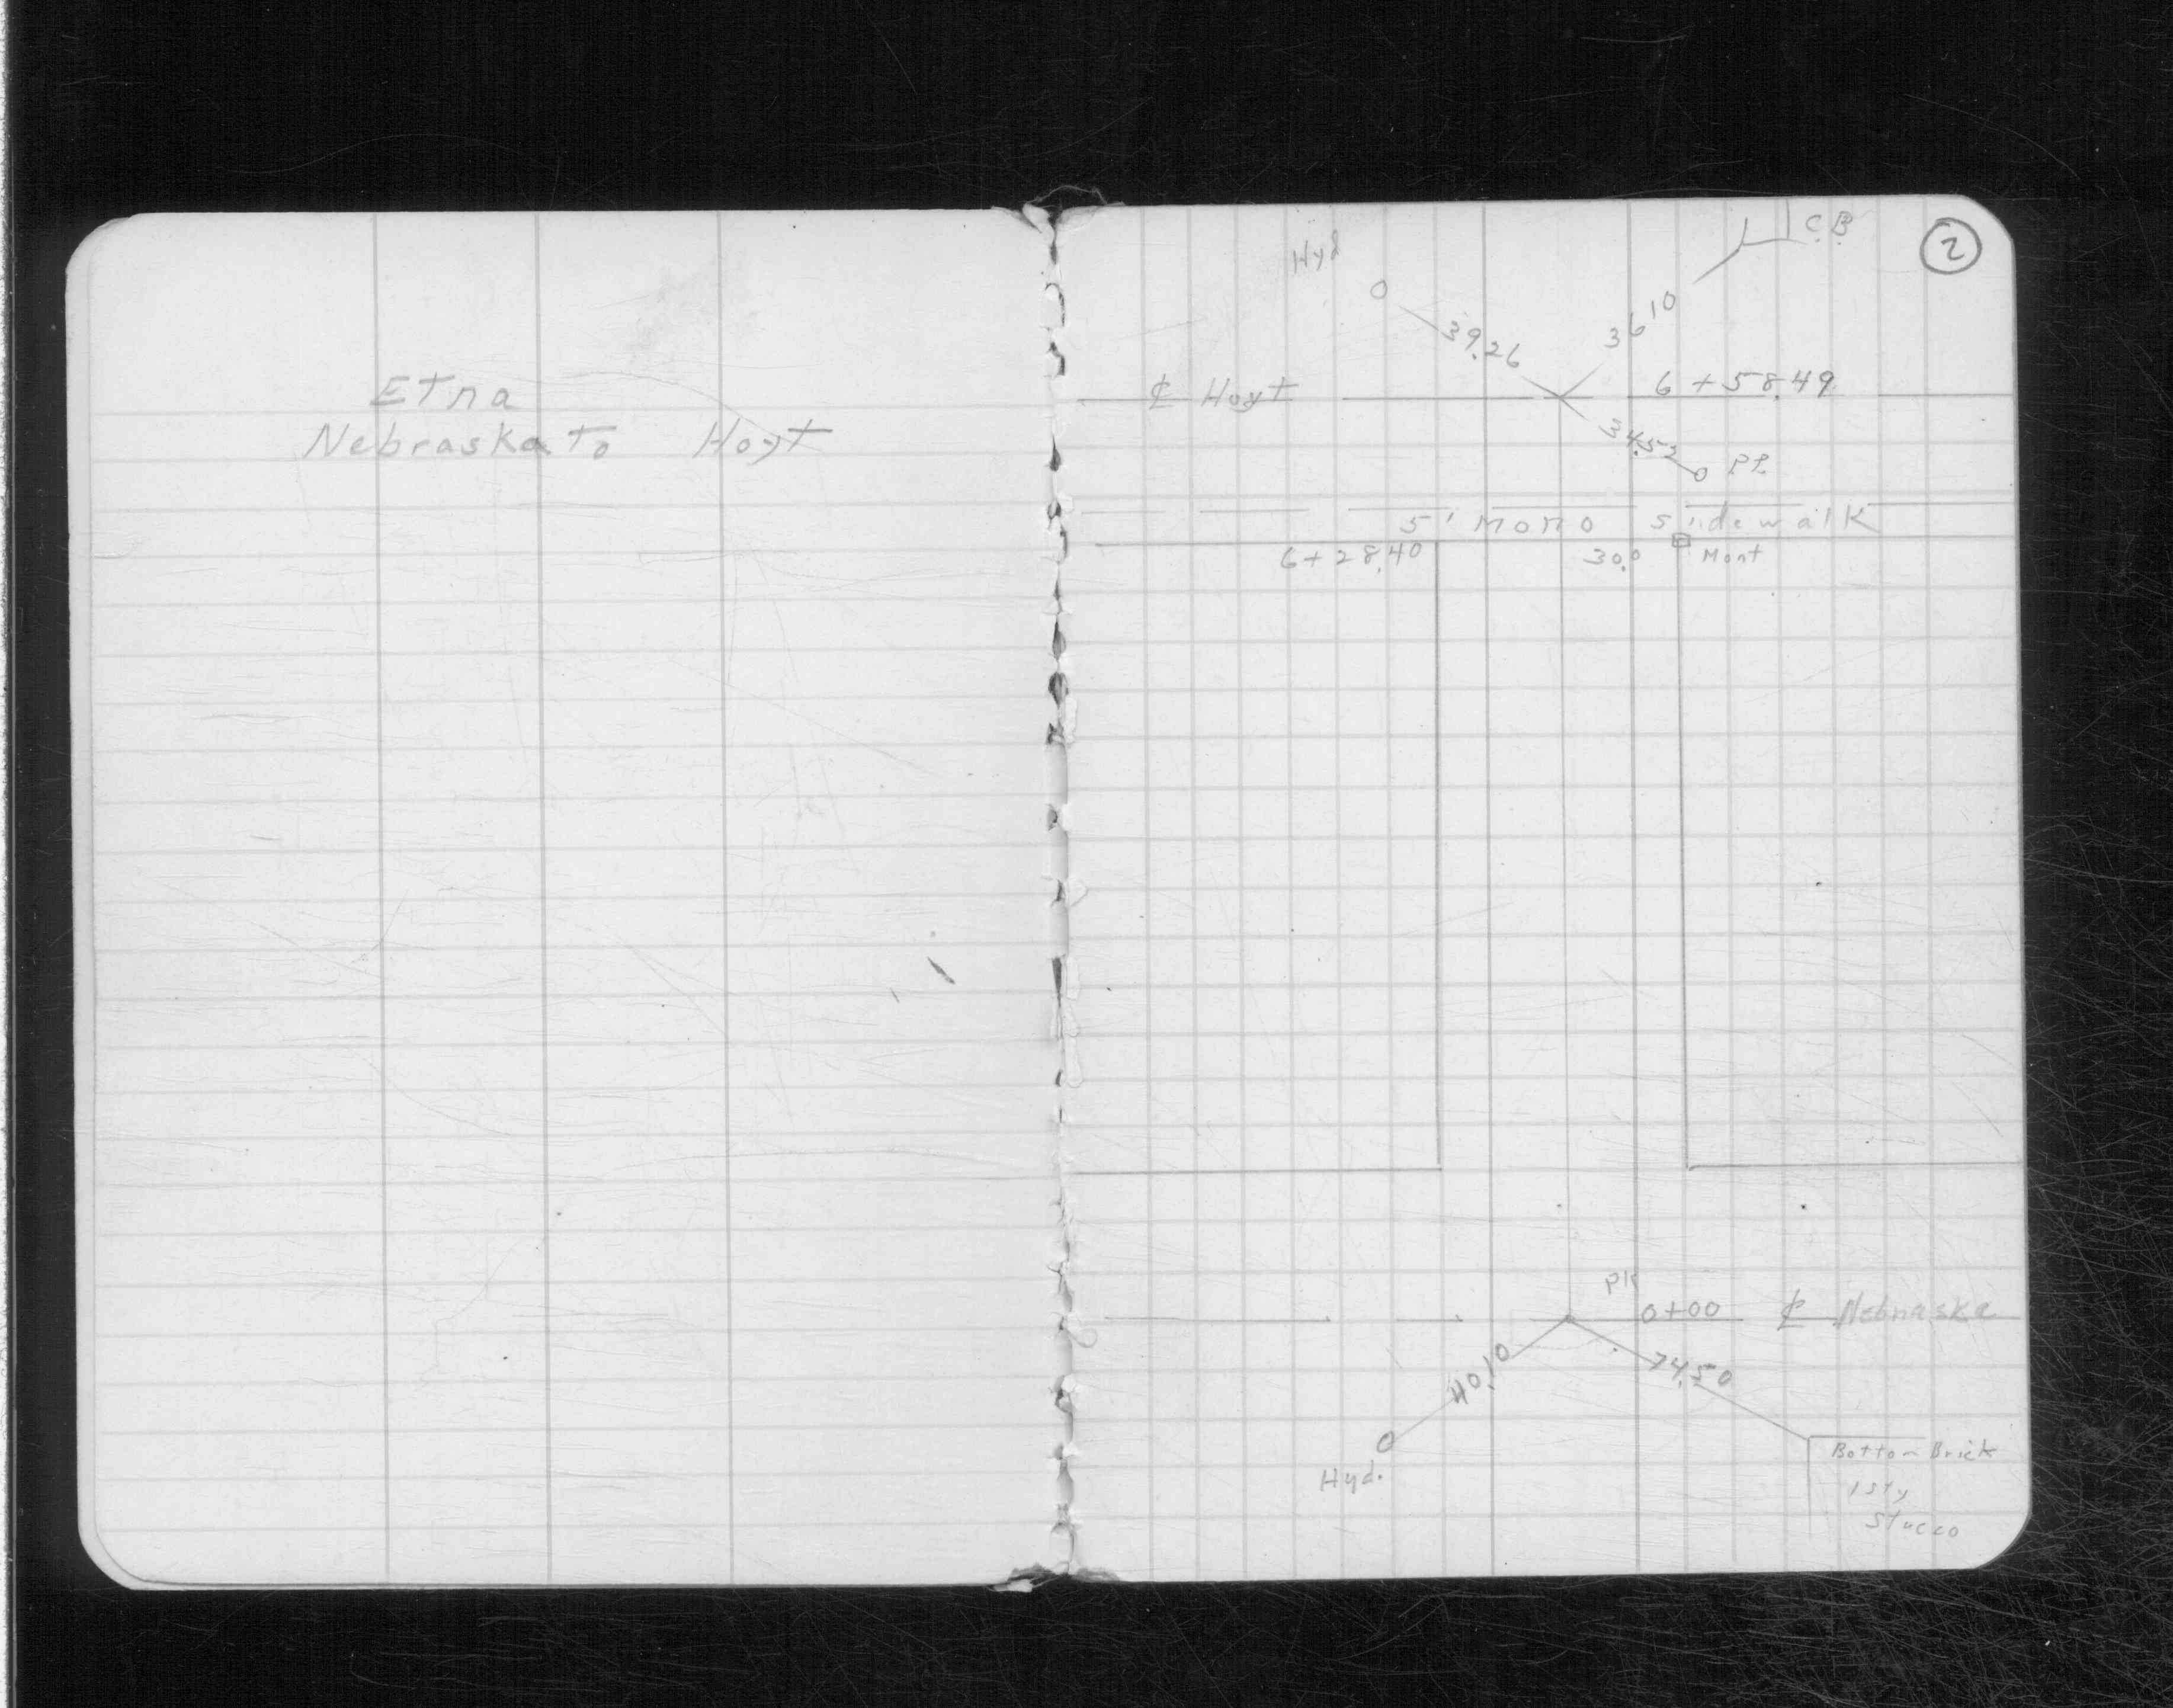 Etna
Nebraska To Hoyt
2
C.B.
Hyd
36.10
39.26
℄ Hoyt
6+58.49
34.52
P.P.
5' Mono Sidewalk
6+28.40
30.0
Mont
PK
0+00
℄ Nebraska
40.10
74.50
Hyd.
Bottom Brick
1 sty
Stucco